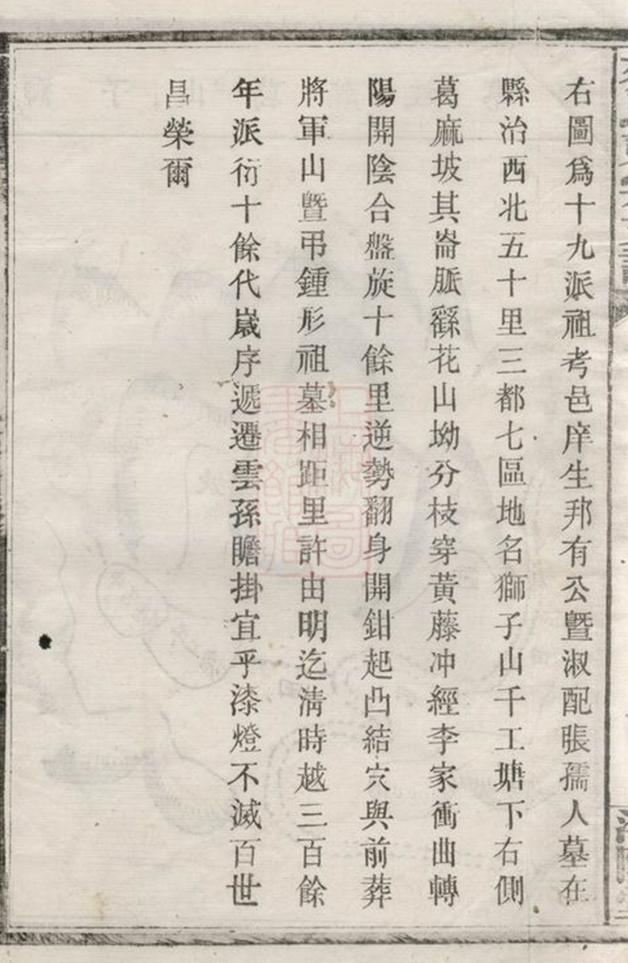 右圖爲十九派祖考邑庠生邦有公暨淑配張孺人墓在
縣治西北五十里三都七區地名獅子山千工塘下右側
葛麻坡其崙脈繇花山坳分枝穿黃藤冲經李家衝曲轉
陽開陰合盤旋十餘里逆勢翻身開鉗起凸結穴與前葬
將軍山暨弔鍾形祖墓相距里許由明迄淸時越三百餘
年派衍十餘代嵗序遞遷雲孫瞻掛宜乎漆燈不滅百世
昌榮爾